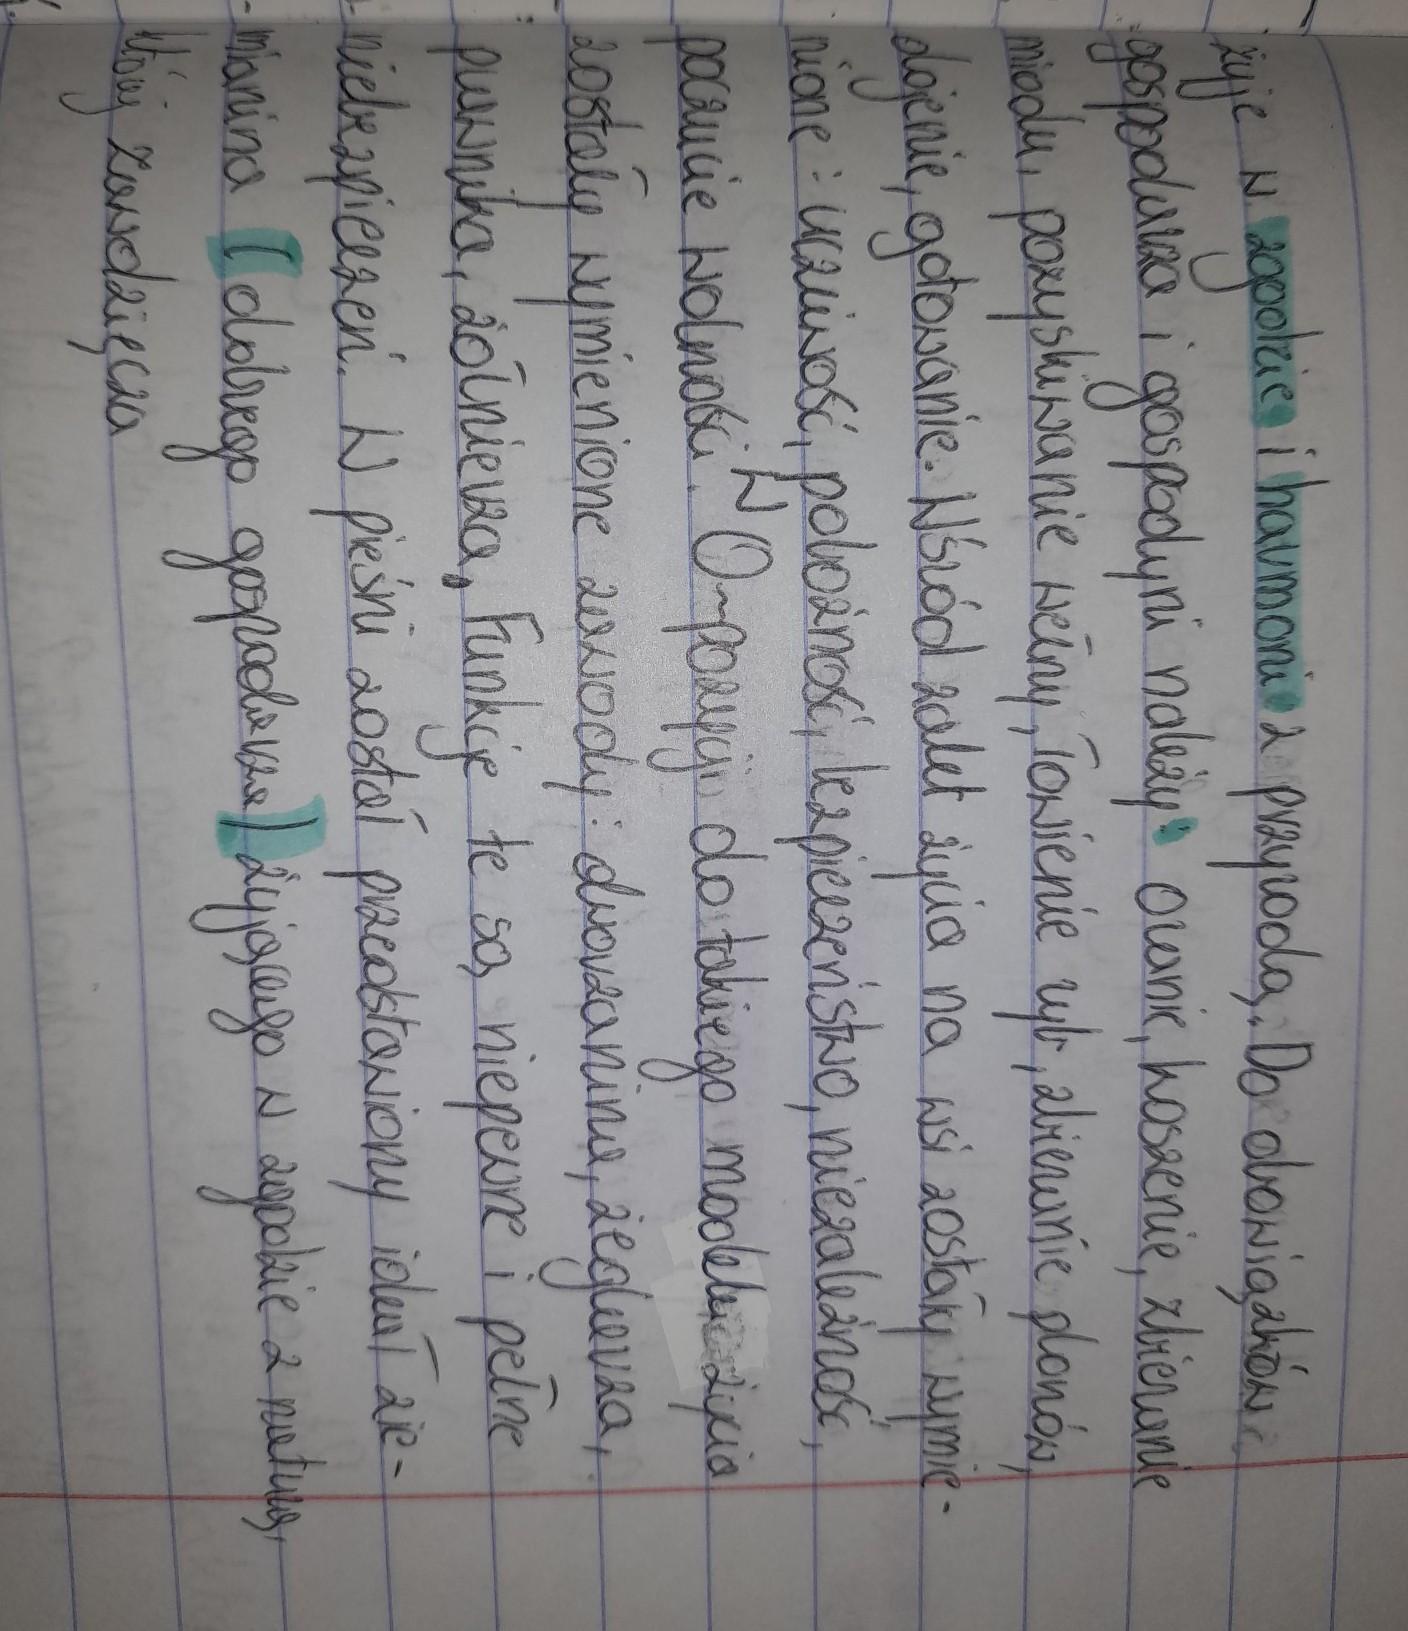 żyje w zgodzie i harmonii z przyrodą. Do obowiązków
gospodarza i gospodyni należy: oranie, koszenie, zbieranie
miodu, pozyskiwanie wełny, łowienie ryb, zbieranie plonów,
dojenie, gotowanie. Wśród zalet życia na wsi zostały wymie-
nione: uczciwość, pobożność, bezpieczeństwo, niezależność,
poczucie wolności. W O~pozycji do takiego modelu życia
zostały wymienione zawody: dworzanina, żeglarza,
prawnika, żołnierza. Funkcje te są niepewne i pełne
niebezpieczeń. W pieśni został przedstawiony ideał zie-
mianina (dobrego gospodarza) żyjącego w zgodzie z naturą,
której zawdzięcza